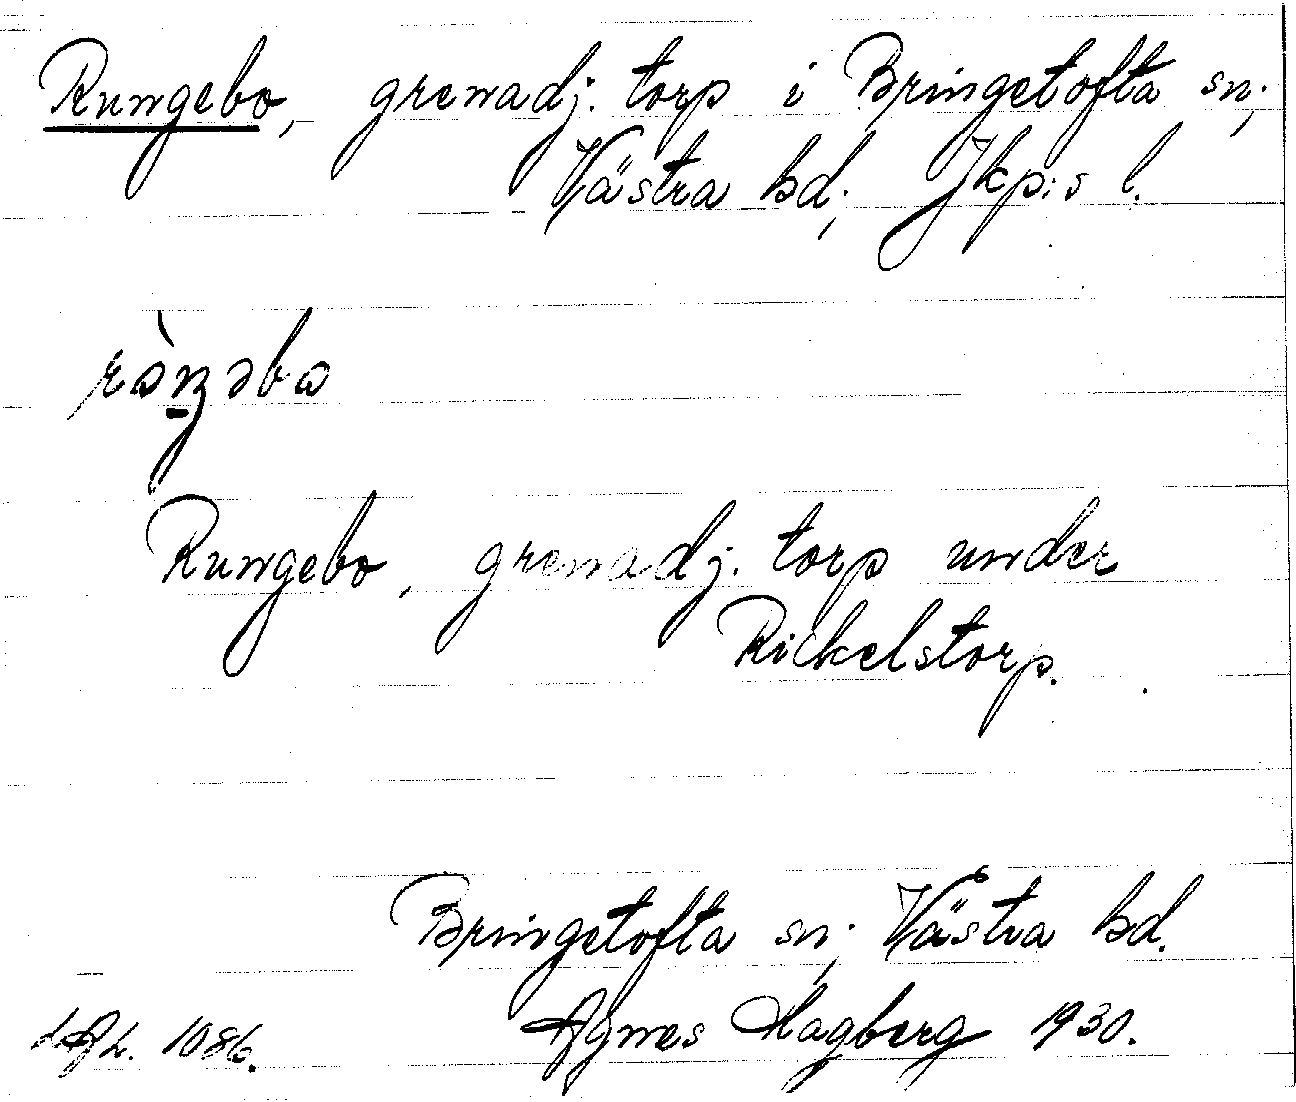 Rungebo, grenadj. torp i Bringetofta sn;
Västra hd; Jkp:s l.
Rungebo, grenadj. torp under
Rickelstorp.
Bringetofta sn; Västra hd.
1086. Agnes Hagberg 1930.